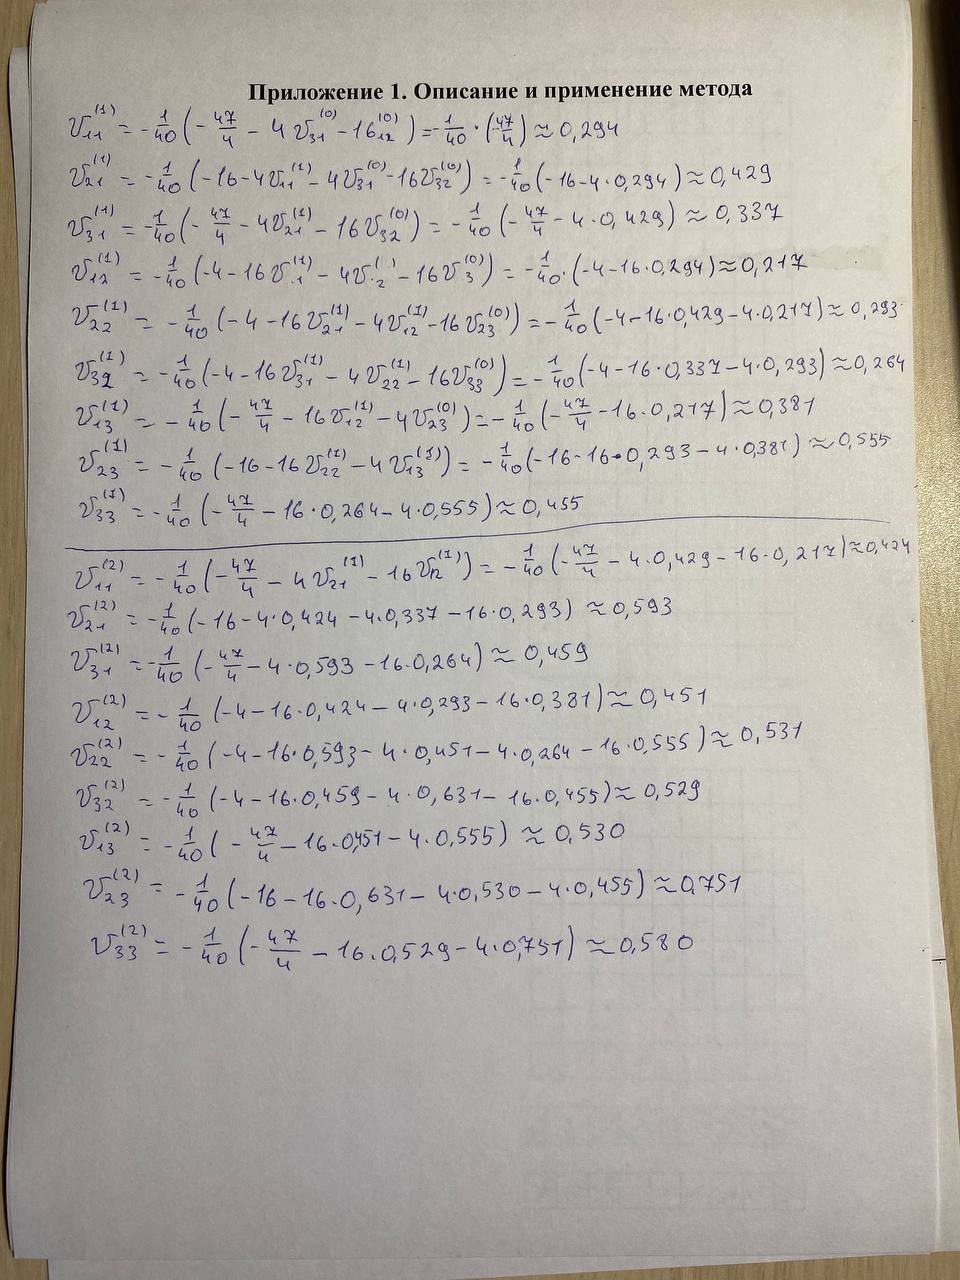 Приложение 1. Описание и применение метода
v₁₁⁽¹⁾ = -1/40 (-47/4 - 4v₃₁⁽⁰⁾ - 16₁₂⁽⁰⁾) = -1/40 · (-47/4) ≈ 0,294
v₂₁⁽¹⁾ = -1/40 (-16 - 4v₁₁⁽¹⁾ - 4v₃₁⁽⁰⁾ - 16v₃₂⁽⁰⁾) = -1/40 (-16 - 4·0,294) ≈ 0,429
v₃₁⁽¹⁾ = -1/40 (-47/4 - 4v₂₁⁽¹⁾ - 16v₃₂⁽⁰⁾) = -1/40 (-47/4 - 4·0,429) ≈ 0,337
v₁₂⁽¹⁾ = -1/40 (-4 - 16v.₁⁽¹⁾ - 4v.₂⁽ ⁾ - 16v₃⁽⁰⁾) = -1/40 · (-4 - 16·0,294) ≈ 0,217
v₂₂⁽¹⁾ = -1/40 (-4 - 16v₂₁⁽¹⁾ - 4v₁₂⁽¹⁾ - 16v₂₃⁽⁰⁾) = -1/40 (-4 - 16·0,429 - 4·0,217) ≈ 0,293
v₃₂⁽¹⁾ = -1/40 (-4 - 16v₃₁⁽¹⁾ - 4v₂₂⁽¹⁾ - 16v₃₃⁽⁰⁾) = -1/40 (-4 - 16·0,337 - 4·0,293) ≈ 0,264
v₁₃⁽¹⁾ = -1/40 (-47/4 - 16v₁₂⁽¹⁾ - 4v₂₃⁽⁰⁾) = -1/40 (-47/4 - 16·0,217) ≈ 0,381
v₂₃⁽¹⁾ = -1/40 (-16 - 16v₂₂⁽¹⁾ - 4v₁₃⁽¹⁾) = -1/40 (-16 - 16·0,293 - 4·0,381) ≈ 0,555
v₃₃⁽¹⁾ = -1/40 (-47/4 - 16·0,264 - 4·0,555) ≈ 0,455
v₁₁⁽²⁾ = -1/40 (-47/4 - 4v₂₁⁽¹⁾ - 16v₁₂⁽¹⁾) = -1/40 (-47/4 - 4·0,429 - 16·0,217) ≈ 0,424
v₂₁⁽²⁾ = -1/40 (-16 - 4·0,424 - 4·0,337 - 16·0,293) ≈ 0,593
v₃₁⁽²⁾ = -1/40 (-47/4 - 4·0,593 - 16·0,264) ≈ 0,459
v₁₂⁽²⁾ = -1/40 (-4 - 16·0,424 - 4·0,293 - 16·0,381) ≈ 0,451
v₂₂⁽²⁾ = -1/40 (-4 - 16·0,593 - 4·0,451 - 4·0,264 - 16·0,555) ≈ 0,531
v₃₂⁽²⁾ = -1/40 (-4 - 16·0,459 - 4·0,631 - 16·0,455) ≈ 0,529
v₁₃⁽²⁾ = -1/40 (-47/4 - 16·0,451 - 4·0,555) ≈ 0,530
v₂₃⁽²⁾ = -1/40 (-16 - 16·0,631 - 4·0,530 - 4·0,455) ≈ 0,751
v₃₃⁽²⁾ = -1/40 (-47/4 - 16·0,529 - 4·0,751) ≈ 0,580